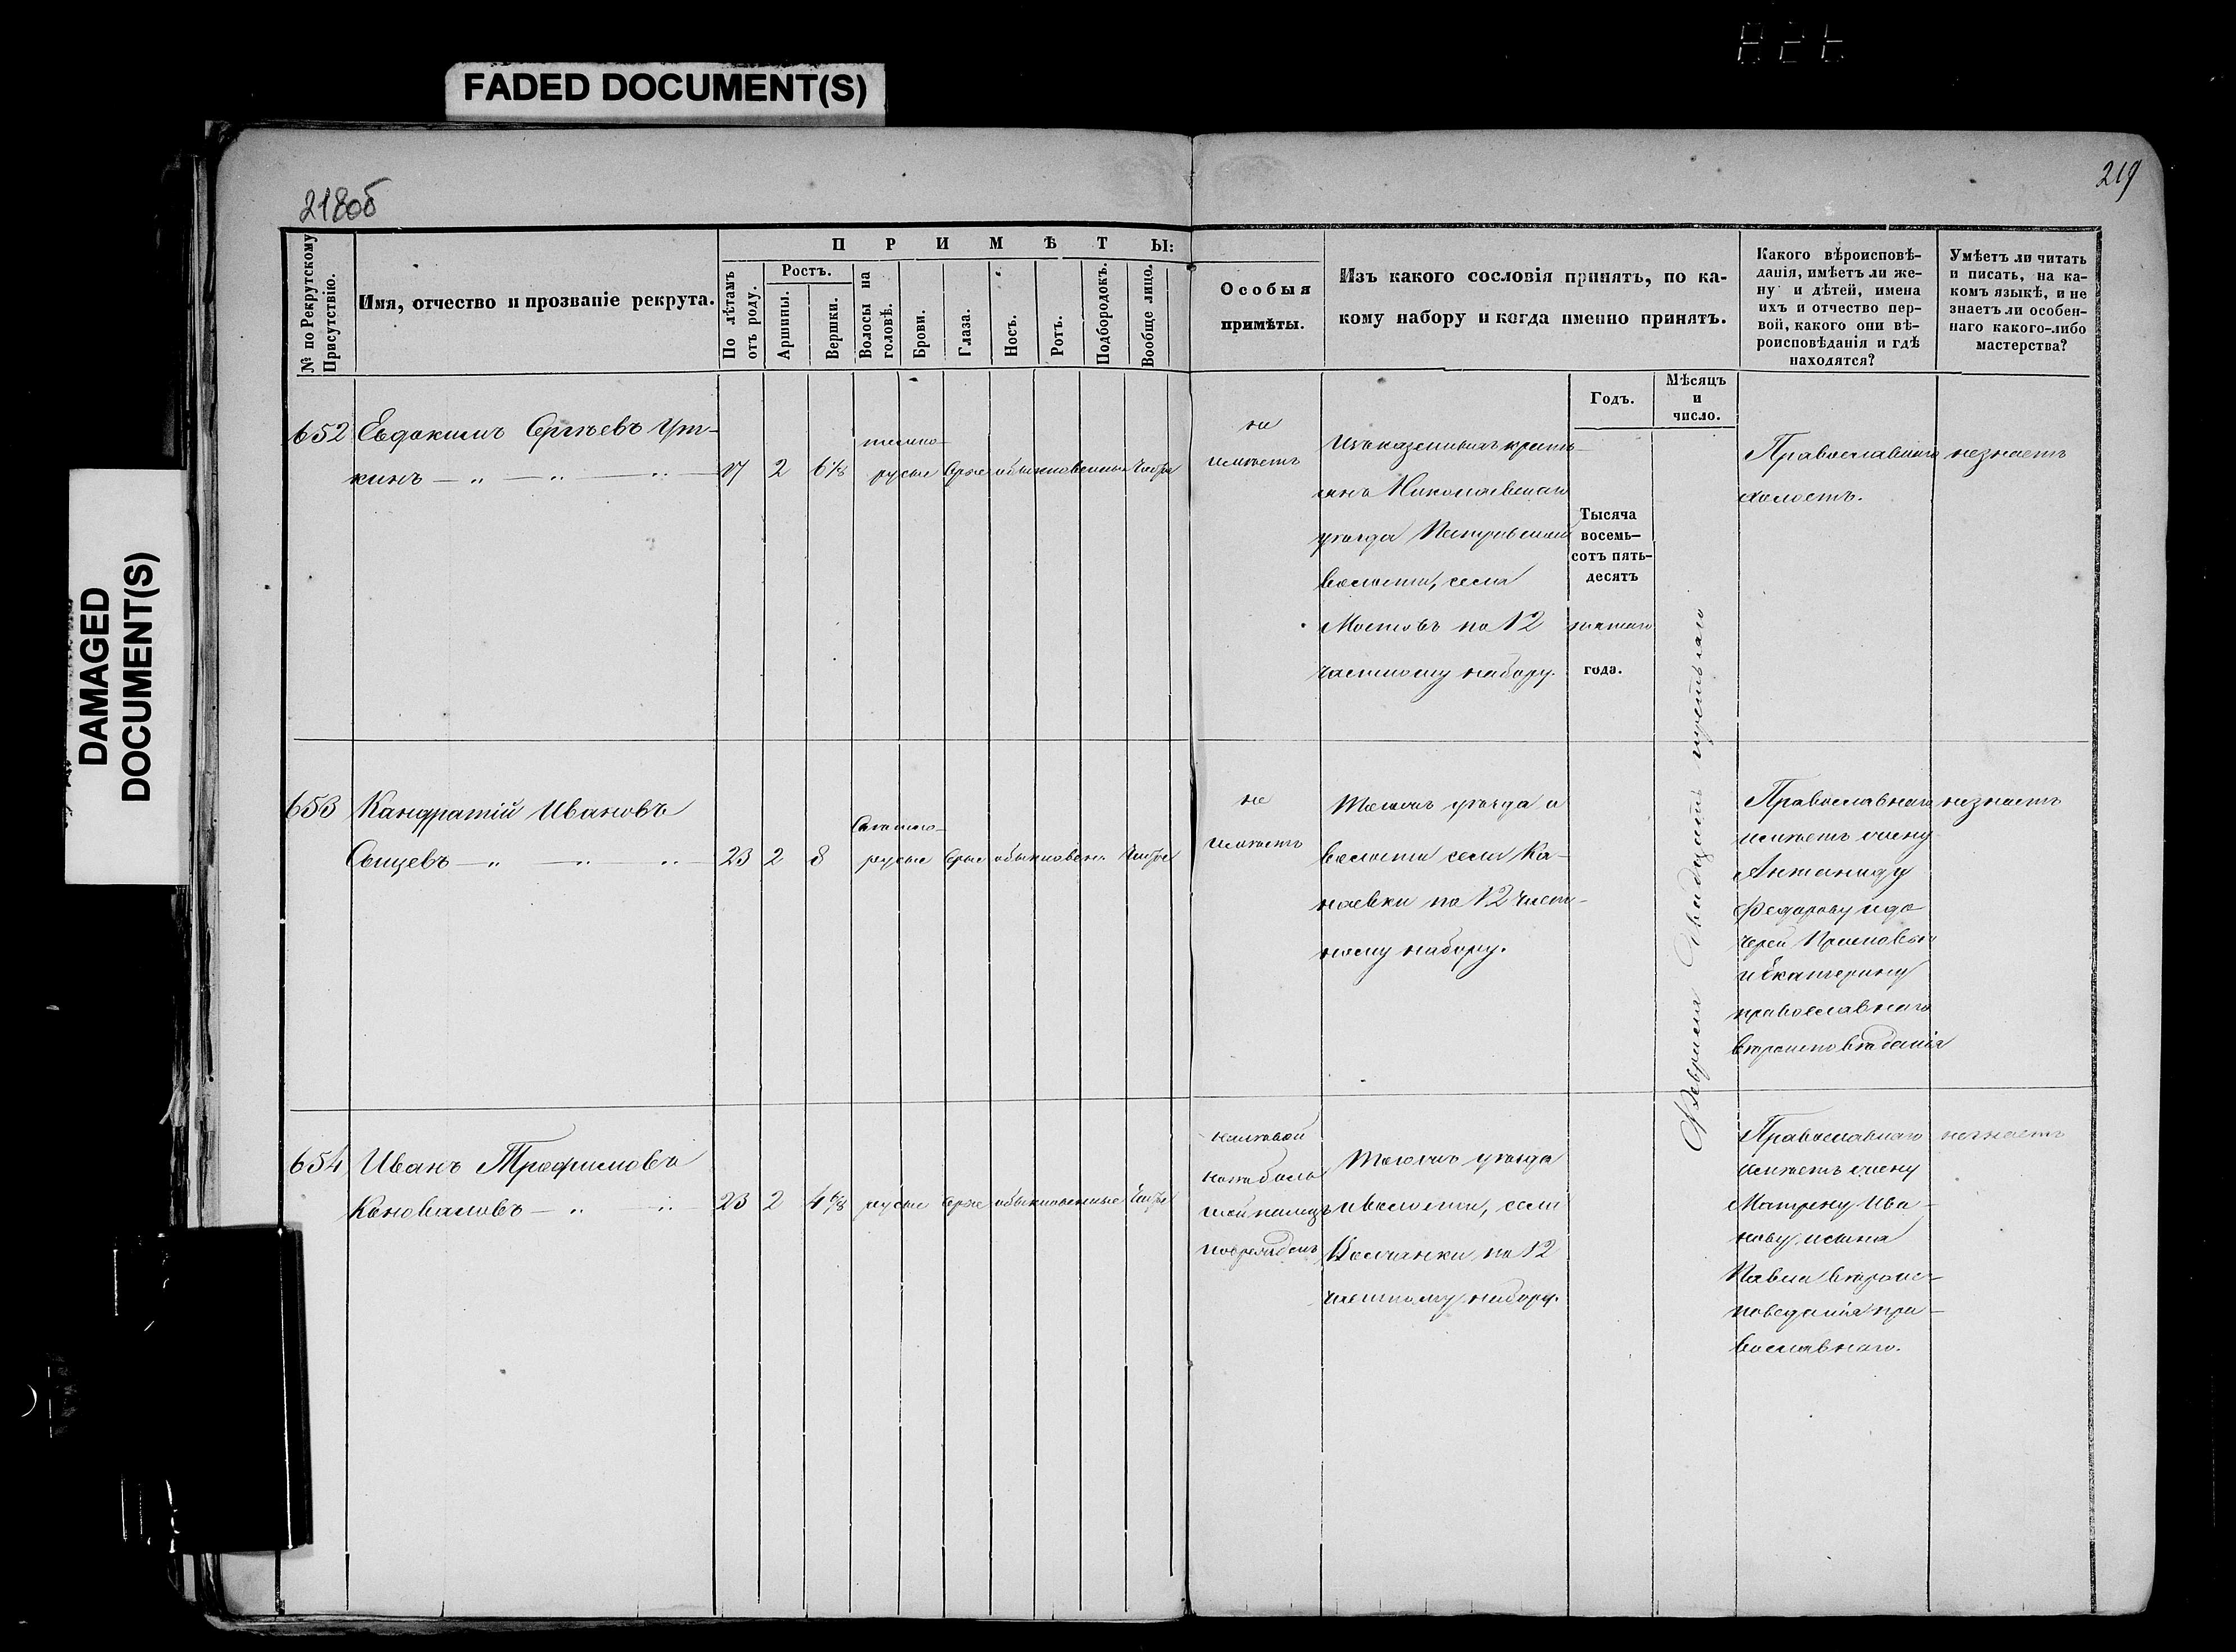 FADED DOCUMENT(S)
DAMAGED
DOCUMENT(S)
218об
219
№ по Рекрутскому
Присутствію.
Имя, отчество и прозваніе рекрута.
ПРИМѢТЫ:
По лѣтамъ
отъ роду.
Ростъ.
Аршины.
Вершки.
Волосы на
головѣ.
Брови.
Глаза.
Носъ.
Ротъ.
Подбородокъ.
Вообще лицо.
Особыя
примѣты.
Изъ какого сословія принятъ, по ка-
кому набору и когда именно принятъ.
Годъ.
Мѣсяцъ
и
число.
Какого вѣроисповѣ-
данія, имѣетъ ли же-
ну и дѣтей, имена
ихъ и отчество пер-
вой, какого они вѣ-
роисповѣданія и гдѣ
находятся?
Умѣетъ ли читать
и писать, на ка-
комъ языкѣ, и не
знаетъ ли особен-
наго какого-либо
мастерства?
652 Евдокимъ Сергѣевъ Ут-
кинъ
2 6 1/8
темно-
русые сѣрые обыкновенные чистое
не
имѣетъ
Изъ казенныхъ кресть-
янъ Николаевскаго
уѣзда Пестравской
волости, села
Мостовъ по 12
частному набору.
Тысяча
восемь-
сотъ пять-
десятъ
года.
Февраля двадцать
Православнаго
холостъ.
незнаетъ
653 Кандратій Ивановъ
Сыщевъ
23 2 8
русые сѣрые обыкновен. чистое
не
имѣетъ
Тогожъ уѣзда и
волости села Ка-
наевки по 12 част-
ному набору.
Православнаго
имѣетъ жену
Антаниду
Федорову и до-
черей Прасковью
и Екатерину
православнаго
вѣроисповѣданія
незнаетъ
654 Иванъ Трофимовъ
Коноваловъ
23 2 4 6/8
русые сѣрые обыкновенные чистое
на лѣвой
ногѣ боль
шой палецъ
поврежденъ
Тогожъ уѣзда
и волости, села
Колчанки по 12
частному набору.
Православнаго
имѣетъ жену
Матрену Ива-
нову и сына
Павла вѣроис-
поведанія пра-
вославнаго.
незнаетъ